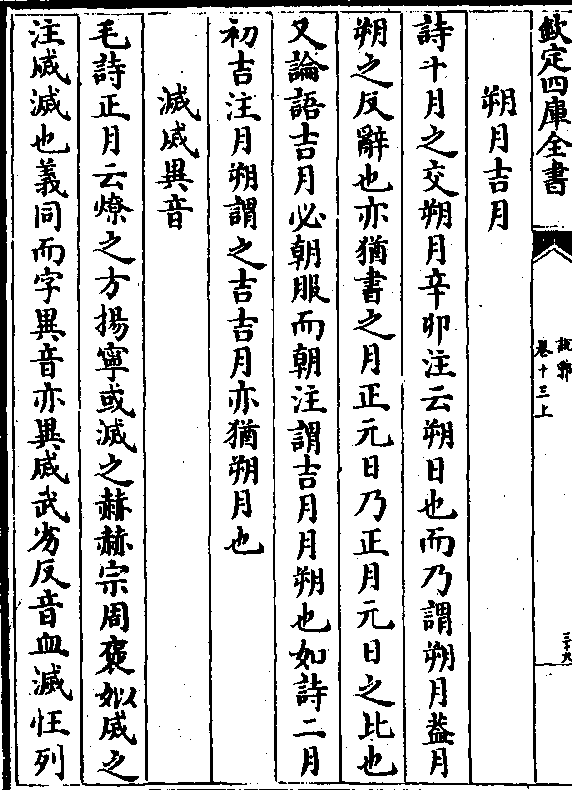 欽定四庫全書
說郛
卷十三上
三十九
朔月吉月
詩十月之交朔月辛卯注云朔日也而乃謂朔月蓋月
朔之反辭也亦猶書之月正元日乃正月元日之比也
又論語吉月必朝服而朝注謂吉月月朔也如詩二月
初吉注月朔謂之吉吉月亦猶朔月也
滅烕異音
毛詩正月云燎之方揚寧或滅之赫赫宗周褒姒烕之
注烕滅也義同而字異音亦異烕武劣反音血滅忹列